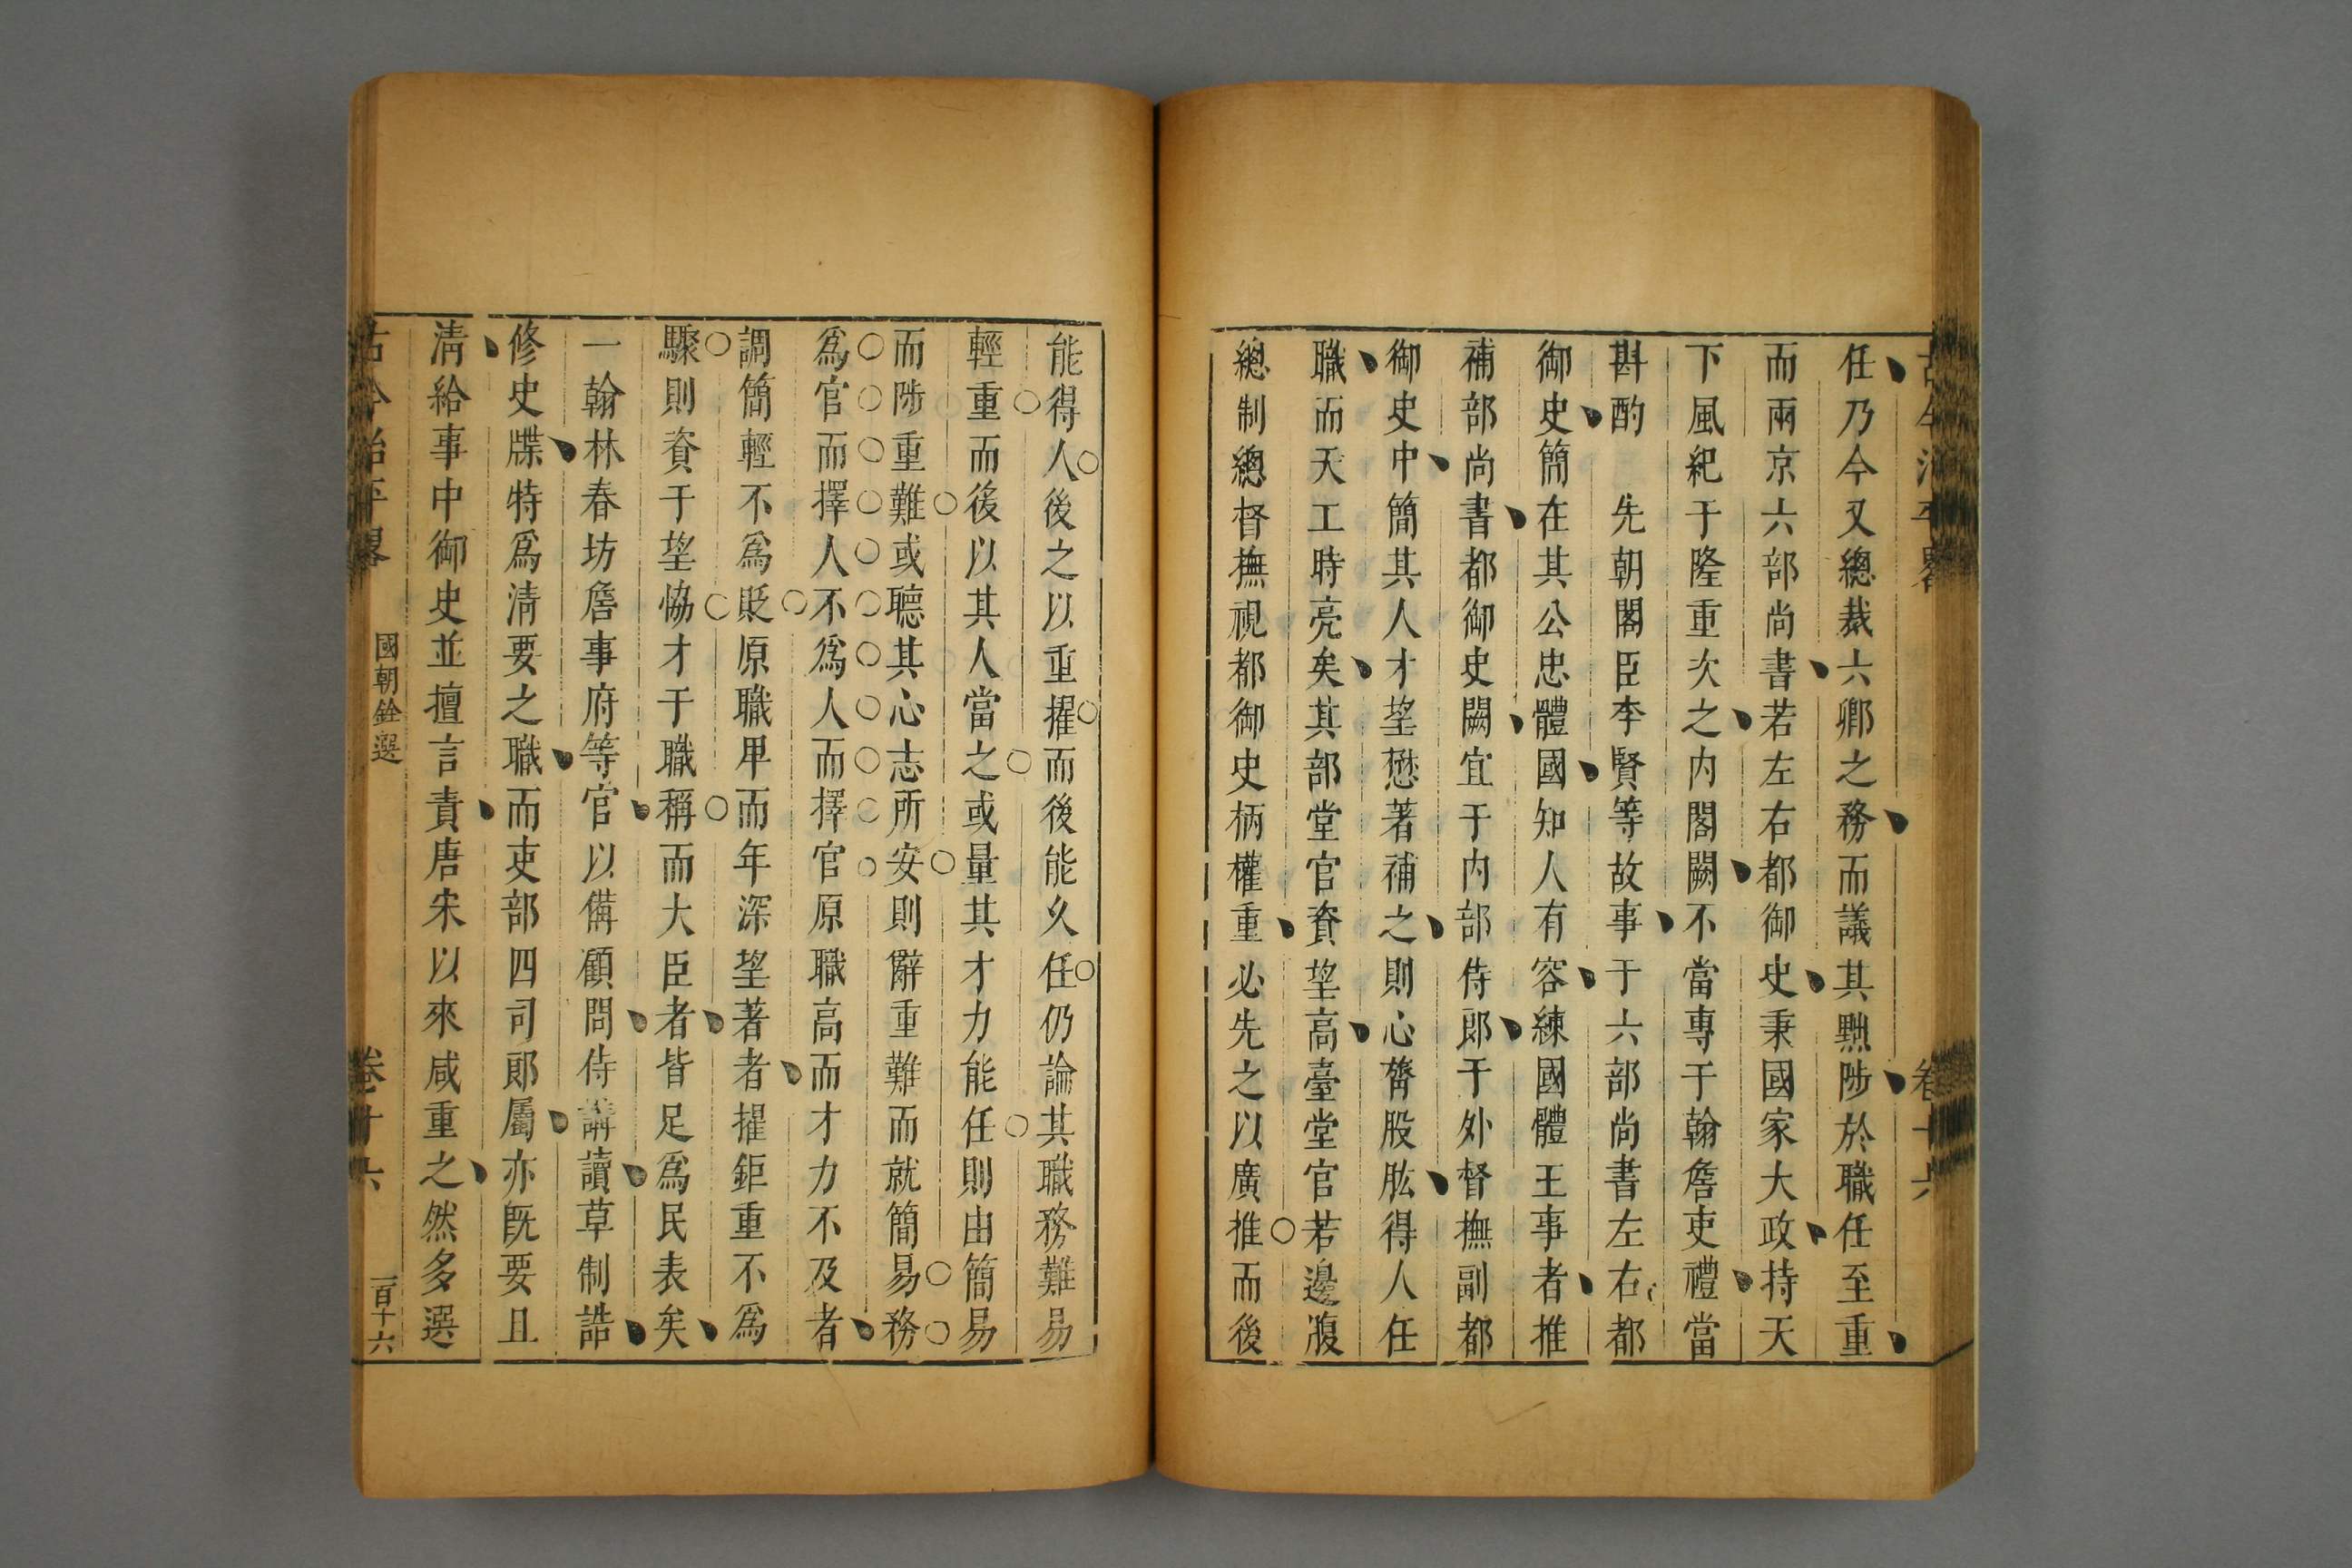 古今治平畧
卷十六
任乃今又總裁六卿之務而議其黜陟於職任至重
而兩京六部尚書若左右都御史秉國家大政持天
下風紀于隆重次之内閣闕不當專于翰詹吏禮當
斟酌　先朝閣臣李賢等故事于六部尚書左右都
御史簡在其公忠體國知人有容練國體王事者推
補部尚書都御史闕宜于内部侍郎于外督撫副都
御史中簡其人才望懋著補之則心膂股肱得人任
職而天工時亮矣其部堂官資望高臺堂官若邊𣸣
總制總督撫視都御史柄權重必先之以廣推而後
能得人後之以重擢而後能久任仍論其職務難易
輕重而後以其人當之或量其才力能任則由簡易
而陟重難或聽其心志所安則辭重難而就簡易務
爲官而擇人不爲人而擇官原職高而才力不及者
調簡輕不爲貶原職卑而年深望著者擢鉅重不爲
驟則資于望恊才于職稱而大臣者皆足爲民表矣
一翰林春坊詹事府等官以備顧問侍講讀草制誥
修史牒特爲清要之職而吏部四司郎屬亦旣要且
清給事中御史並擅言責唐宋以來咸重之然多選
古今治平畧
國朝銓選
卷十六
一百十六